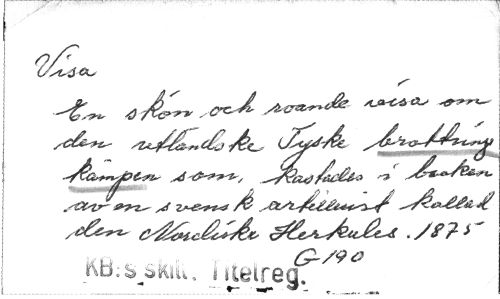 Visa
En skön och roande visa om
den utländske Tyske brottnings
kämpen som, kastades i backen
av en svensk artillerist kallad
den Nordiske Herkules. 1875
G 190
KB:s skill. Titelreg.